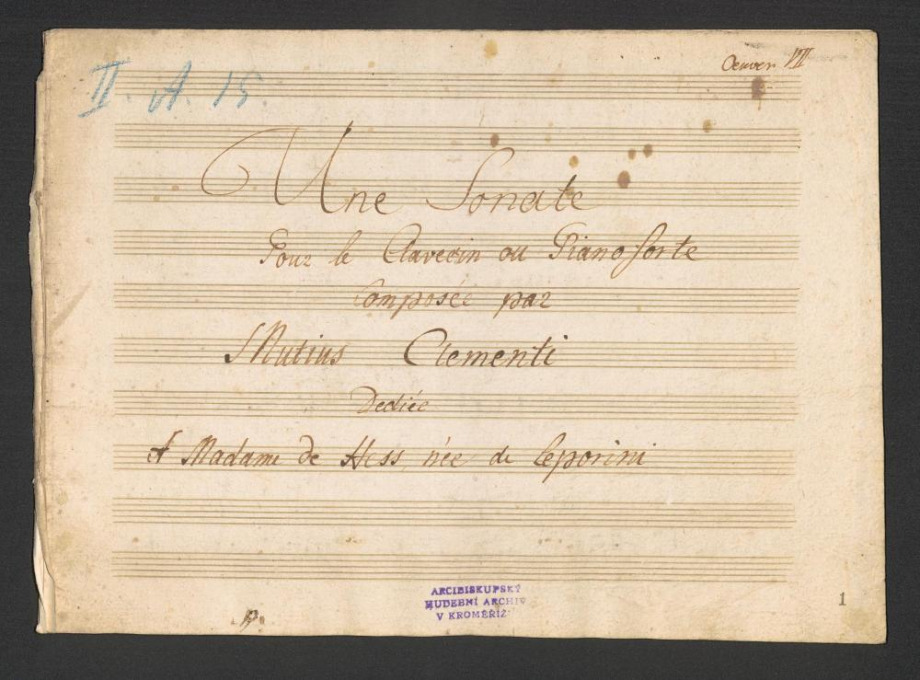 II. A. 15.
Oeuvre VII
Une Sonate
Pour le Clavecin ou Piano forte
Composée par
Mutius Clementi
Dediée
A Madame de Hess née de Leporini
ARCIBISKUPSKÝ
HUDEBNÍ ARCHIV
V KROMĚŘÍŽI
1